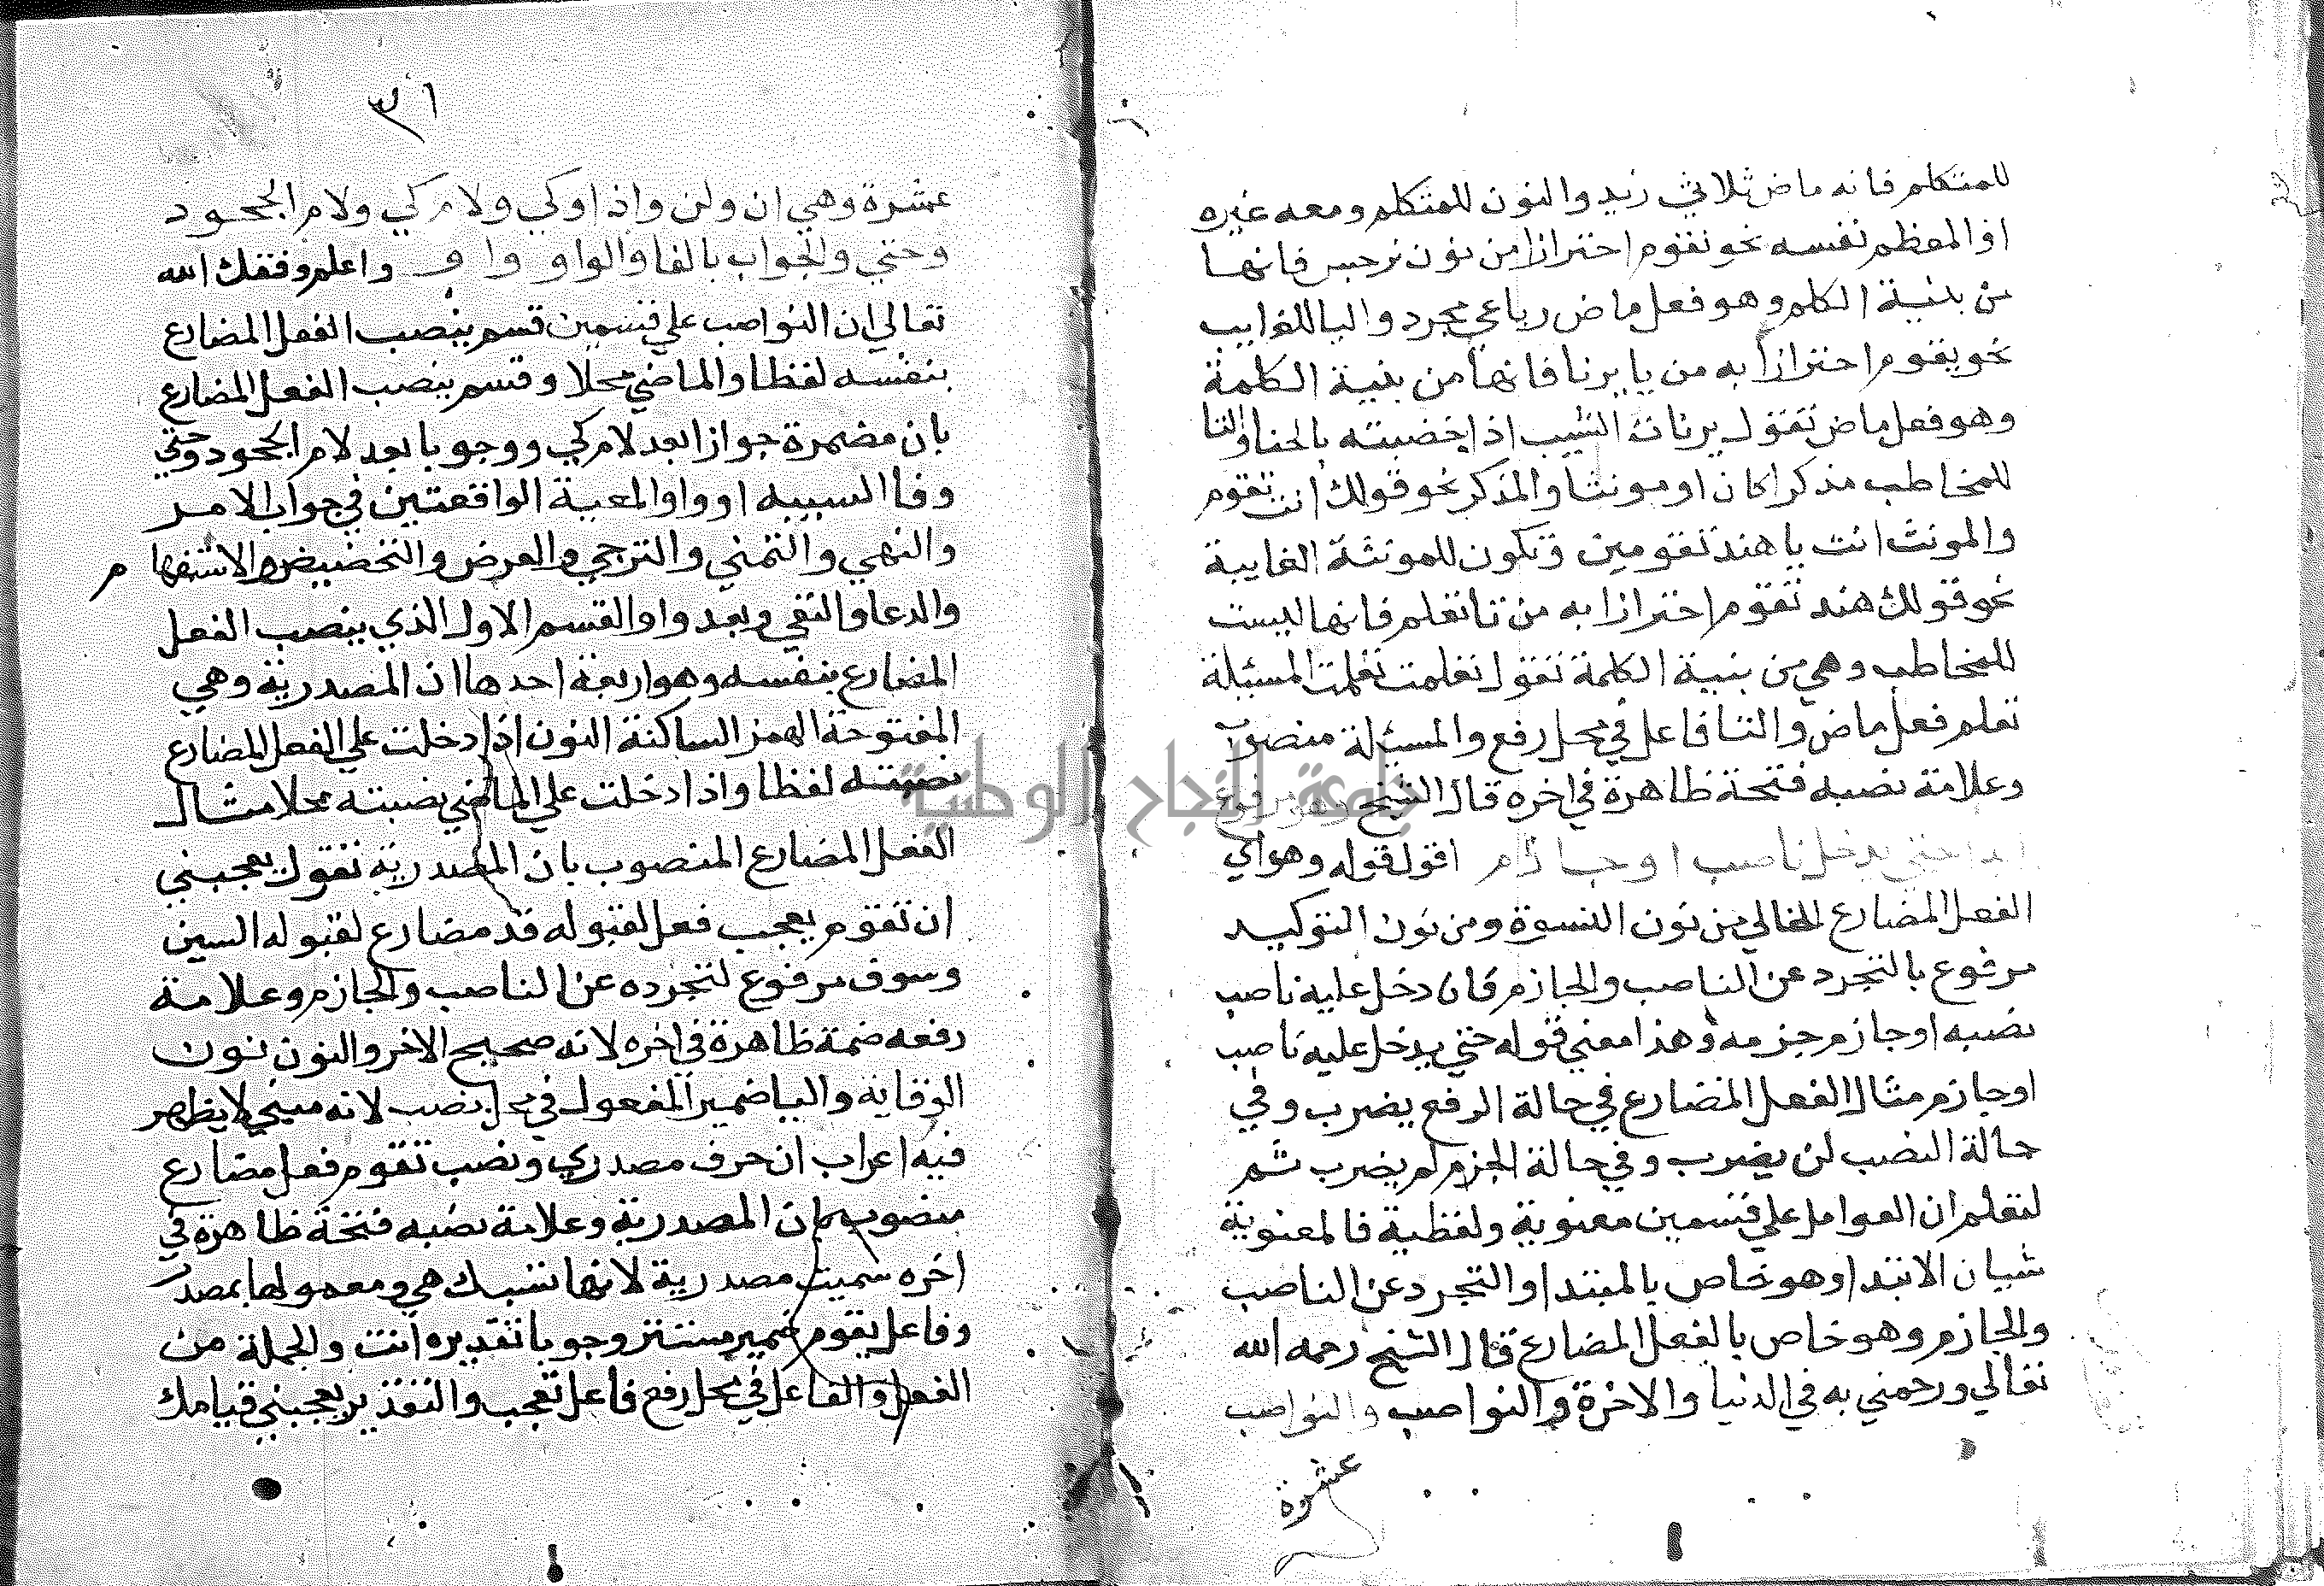 للمتكلم فانه ماض ثلاثي زيد والنون للمتكلم ومعه غيره
او المعظم نفسه نحو نقوم احترازا من نون نرجس فانها
من بنية الكلم وهو فعل ماض رباعي مجرد واليا للغايب
نحو يقوم احترازا به من يا يرنا فانها من بنية الكلمة
وهو فعل ماض تقول يرنات الشيب اذا خضبته بالحنا والتا
للمخاطب مذكرا كان او مونثا والمذكر نحو قولك انت تقوم
والمونث انت يا هند تقومين وتكون للمونثة الغايبة
نحو قولك هند تقوم احترازا به من تا تعلم فانها ليست
للمخاطب وهي من بنية الكلمة تقول تعلمت المسئلة
تعلم فعل ماض والتا فاعل في محل رفع والمسئلة منصوب
وعلامة نصبه فتحة ظاهرة في اخره قال الشيخ وهو مرفوع
ابدا حتى يدخل ناصب او جازم اقول قوله وهو اي
الفعل المضارع الخالي من نون النسوة ومن نون التوكيد
مرفوع بالتجرد عن الناصب والجازم فان دخل عليه ناصب
نصبه او جازم جزمه وهذا معني قوله حتي يدخل عليه ناصب
او جازم مثال الفعل المضارع في حالة الرفع يضرب وفي
حالة النصب لن يضرب وفي حالة الجزم لم يضرب ثم
لتعلم ان العوامل علي قسمين معنوية ولفظية فالمعنوية
شيان الابتدا وهو خاص بالمبتدا والتجرد عن الناصب
والجازم وهو خاص بالفعل المضارع قال الشيخ رحمه الله
تعالي ورحمني به في الدنيا والاخرة والنواصب والنواصب
عشرة
٣١
عشرة وهي ان ولن واذا وكي ولام كي ولام الجحود
وحتي والجواب بالفا والواو واو واعلم وفقك الله
تعالي ان النواصب علي قسمين قسم ينصب الفعل المضارع
بنفسه لفظا والماضي محلا وقسم ينصب الفعل المضارع
بان مضمرة جوازا بعد لام كي ووجوبا بعد لام الجحود وحتي
وفا السببيه او واو المعية الواقعتين في جواب الامر
والنهي والتمني والترجي والعرض والتحضيض والاستفهام
والدعا والنفي وبعد واو القسم الاول الذي ينصب الفعل
المضارع بنفسه وهو اربعة احدها ان المصدرية وهي
المفتوحة الهمز الساكنة النون اذا دخلت علي الفعل المضارع
نصبته لفظا واذا دخلت علي الماضي نصبته محلا مثال
الفعل المضارع المنصوب بان المصدرية تقول يعجبني
ان تقوم يعجب فعل لقبوله قد مضارع لقبوله السين
وسوف مرفوع لتجرده عن الناصب والجازم وعلامة
رفعه ضمة ظاهرة في اخره لانه صحيح الاخر والنون نون
الوقايه واليا ضمير المفعول في محل نصب لانه مبني لا يظهر
فيه اعراب ان حرف مصدري ونصب تقوم فعل مضارع
منصوب بان المصدرية وعلامة نصبه فتحة ظاهرة في
اخره سميت مصدرية لانها تسبك هي ومعمولها بمصدر
وفاعل يقوم ضمير مستتر وجوبا تقديره انت والجملة من
الفعل والفاعل في محل رفع فاعل تعجب والتقدير يعجبني قيامك